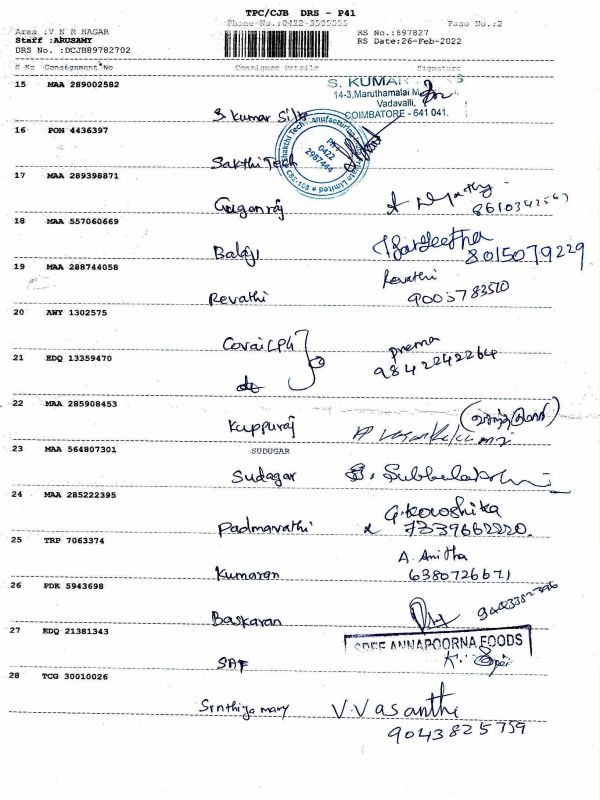 TPC/CJB DRS - P41
Phone No.:0422-3505555 Page No.:2
Area :V N R NAGAR RS No.:897827
Staff :ARUSAMY RS Date:26-Feb-2022
DRS No. :DCJB89782702
S No Consignment No Consignee Details Signature
15 MAA 289002582
S. KUMAR
14-3,Maruthamalai
Vadavalli,
COIMBATORE - 641 041.
S kumar Silks
16 PON 4436397
Shakthi Tech Manufacturing Private Limited
PH: 0422 2987444
Sakthi Tech
17 MAA 289398871
Gugan raj
8610342567
18 MAA 557060669
Balaji Sangeetha
8015079229
19 MAA 288744058
Revathi Revathi
9003783510
20 AWY 1302575
Covai LPG prema
9842242264
21 EDQ 13359470
do
22 MAA 285908453
Kuppuraj
23 MAA 564807301 SUDUGAR
Sudagar B. Subbulakshmi
24 MAA 285222395
Padmavathi G. Kowshika
7339662220.
25 TRP 7063374
Kumaran A. Anitha
6380726671
26 PDK 5943698
Baskaran
27 EDQ 21381343
SREE ANNAPOORNA FOODS
SAF
28 TCG 30010026
Sinthiya mary V. Vasanthi
9043825759